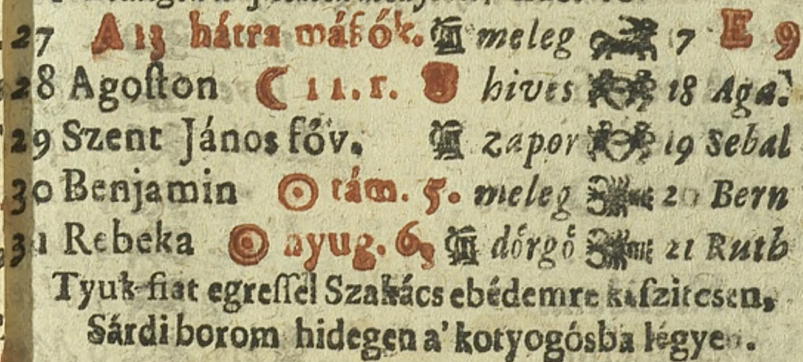 27 A 13 hátra mások. meleg 17 E 9
28 Agoſton 11. r. hives 18 Aga.
29 Szent János föv. zapor 19 Sebal
30 Benjamin tám. 5. meleg 20 Bern
31 Rebeka nyug. 6, dörgö 21 Ruth
Tyuk-fiat egreſſel Szakács ebédemre kéſzitcsen,
Sárdi borom hidegen a' kotyogósba légyen.